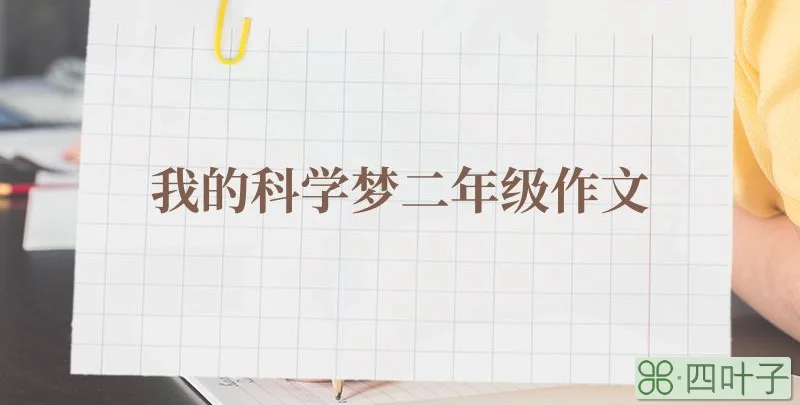 我的科学梦二年级作文
四叶子